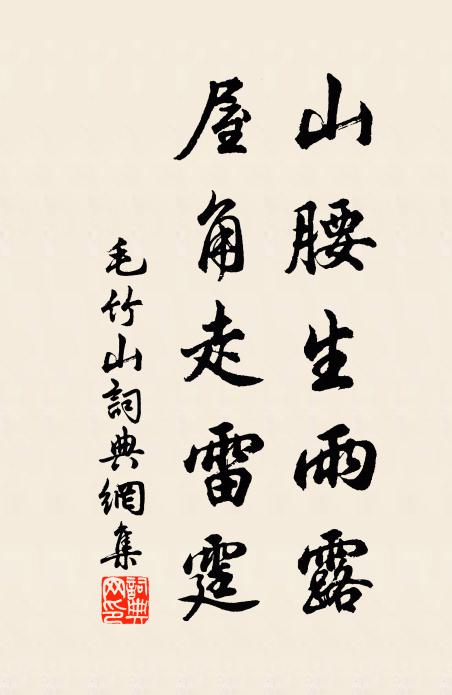 山腰生雨露
屋角走雷霆
毛竹山詞典網集
詞典网印